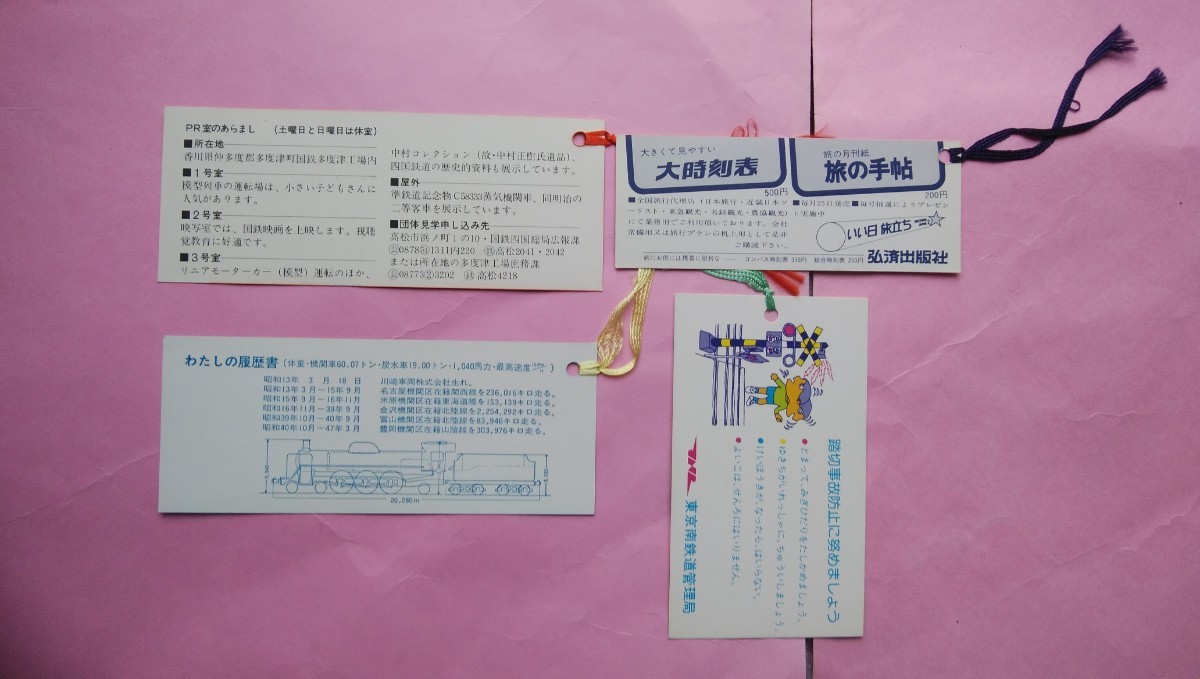 PR室のあらまし （土曜日と日曜日は休室）
■所在地
香川県仲多度郡多度津町国鉄多度津工場内
■1号室
模型列車の運転場は、小さい子どもさんに
人気があります。
■2号室
映写室では、国鉄映画を上映します。視聴
覚教育に好適です。
■3号室
リニアモーターカー（模型）運転のほか、
中村コレクション（故・中村正樹氏遺品）、
四国鉄道の歴史的資料も展示しています。
■屋外
準鉄道記念物C58333蒸気機関車、同明治の
二等客車を展示しています。
■団体見学申し込み先
高松市浜ノ町1の10・国鉄四国総局広報課
1311内220 高松2041・2042
または所在地の多度津工場庶務課
3202 高松4218
大きくて見やすい
大時刻表
500円
■全国旅行代理店（日本旅行・近畿日本ツ
ーリスト・東急観光・名鉄観光・農協観光）
にて業務用でご利用頂いております。会社
常備用又は旅行プランの机上用として是非
ご購読下さい。
旅の月刊紙
旅の手帖
200円
■毎月25日発売■毎号抽選によりプレゼン
ト実施中
いい日旅立ち
コンパス時刻表
弘済出版社
わたしの履歴書（体重・機関車60.07トン・炭水車19.00トン・1,040馬力・最高速度）
昭和13年 3月18日 川崎車両株式会社生れ。
昭和13年3月－15年9月 名古屋機関区在籍関西線を236,016キロ走る。
昭和15年9月－16年11月 米原機関区在籍東海道線を153,139キロ走る。
昭和16年11月－39年9月 金沢機関区在籍北陸線を2,254,292キロ走る。
昭和39年10月－40年9月 富山機関区在籍北陸線を83,946キロ走る。
昭和40年10月－47年3月 豊岡機関区在籍山陰線を303,976キロ走る。
踏切事故防止に努めましょう
●とまって、みぎひだりをたしかめましょう。
●ゆきちがいれっしゃに、ちゅういしましょう。
●けいほうきが、なったら、はいらない。
●よいこは、せんろにはいりません。
東京南鉄道管理局